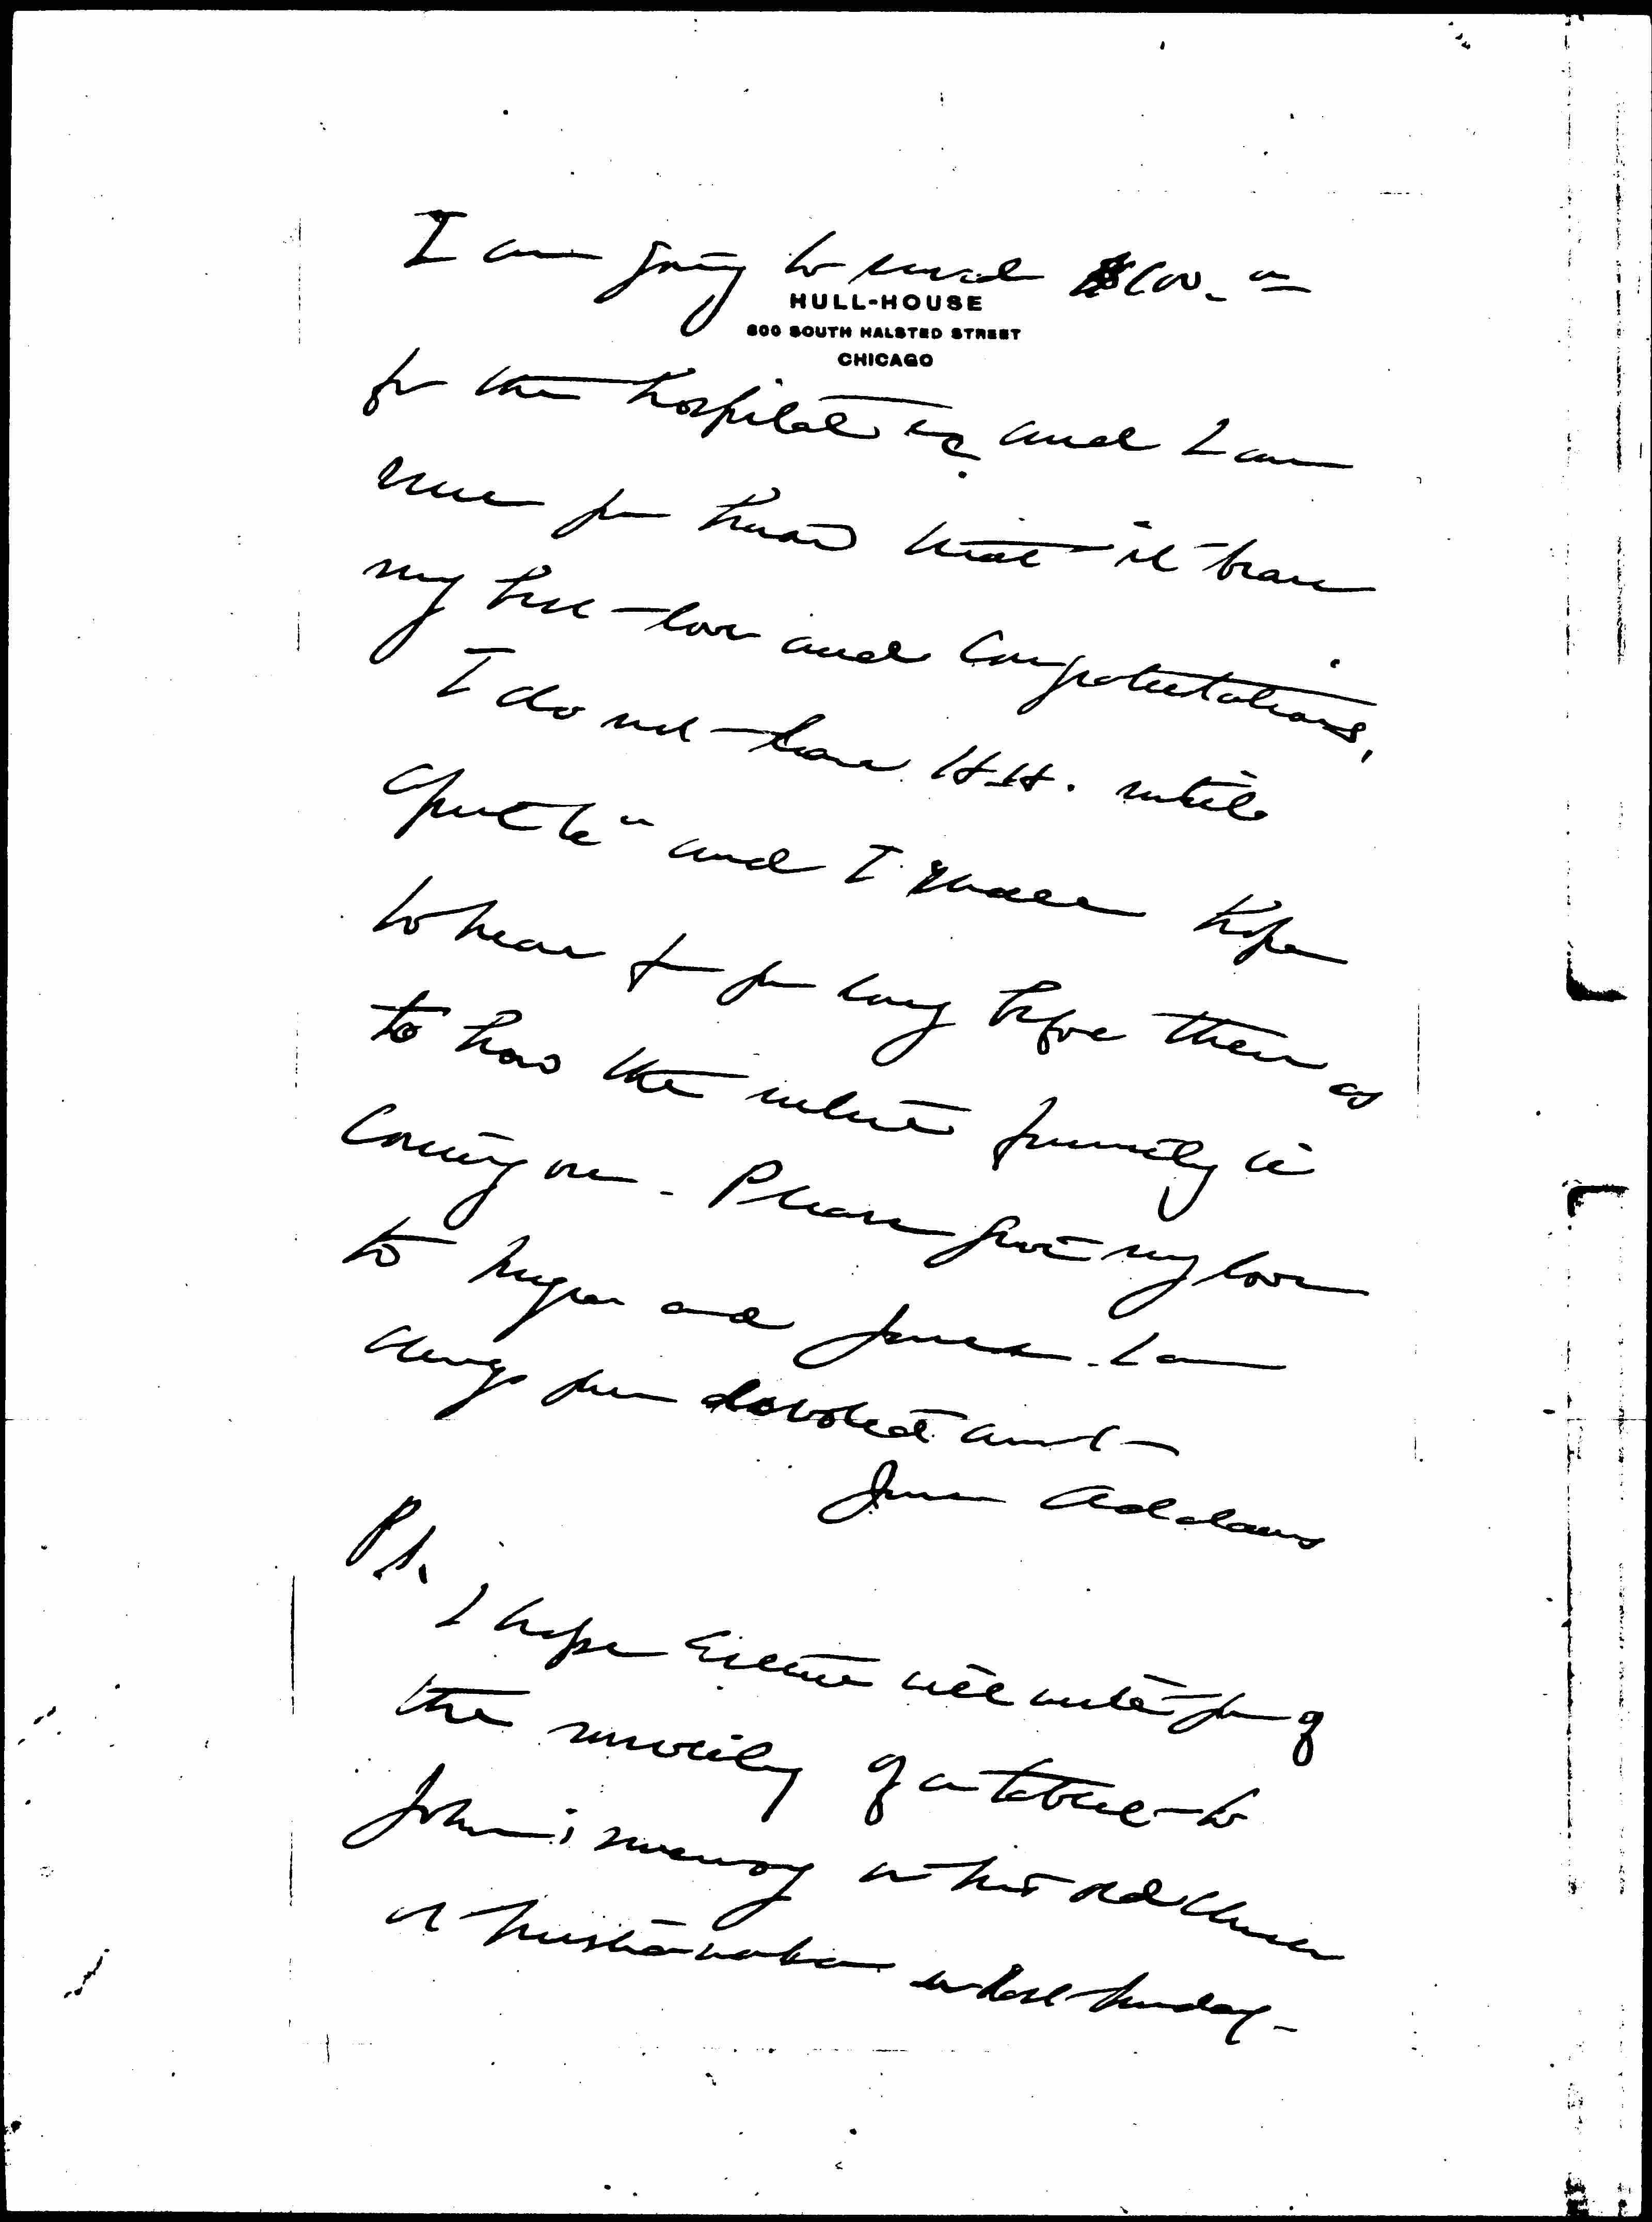 I am going to send $100.00
HULL-HOUSE
800 SOUTH HALSTED STREET
CHICAGO
for the hospital etc and I am
sure you know that it bears
my best love and congratulations.
I do not leave H-H. until
April and I shall hope
to hear from you long before then as
to how the entire family is
coming on. Please give my love
to and James. I am
always your devoted aunt
Jane Addams
P.S.
I hope will write you of
the unveiling of a tablet to
John's memory in his old church
at last Sunday -